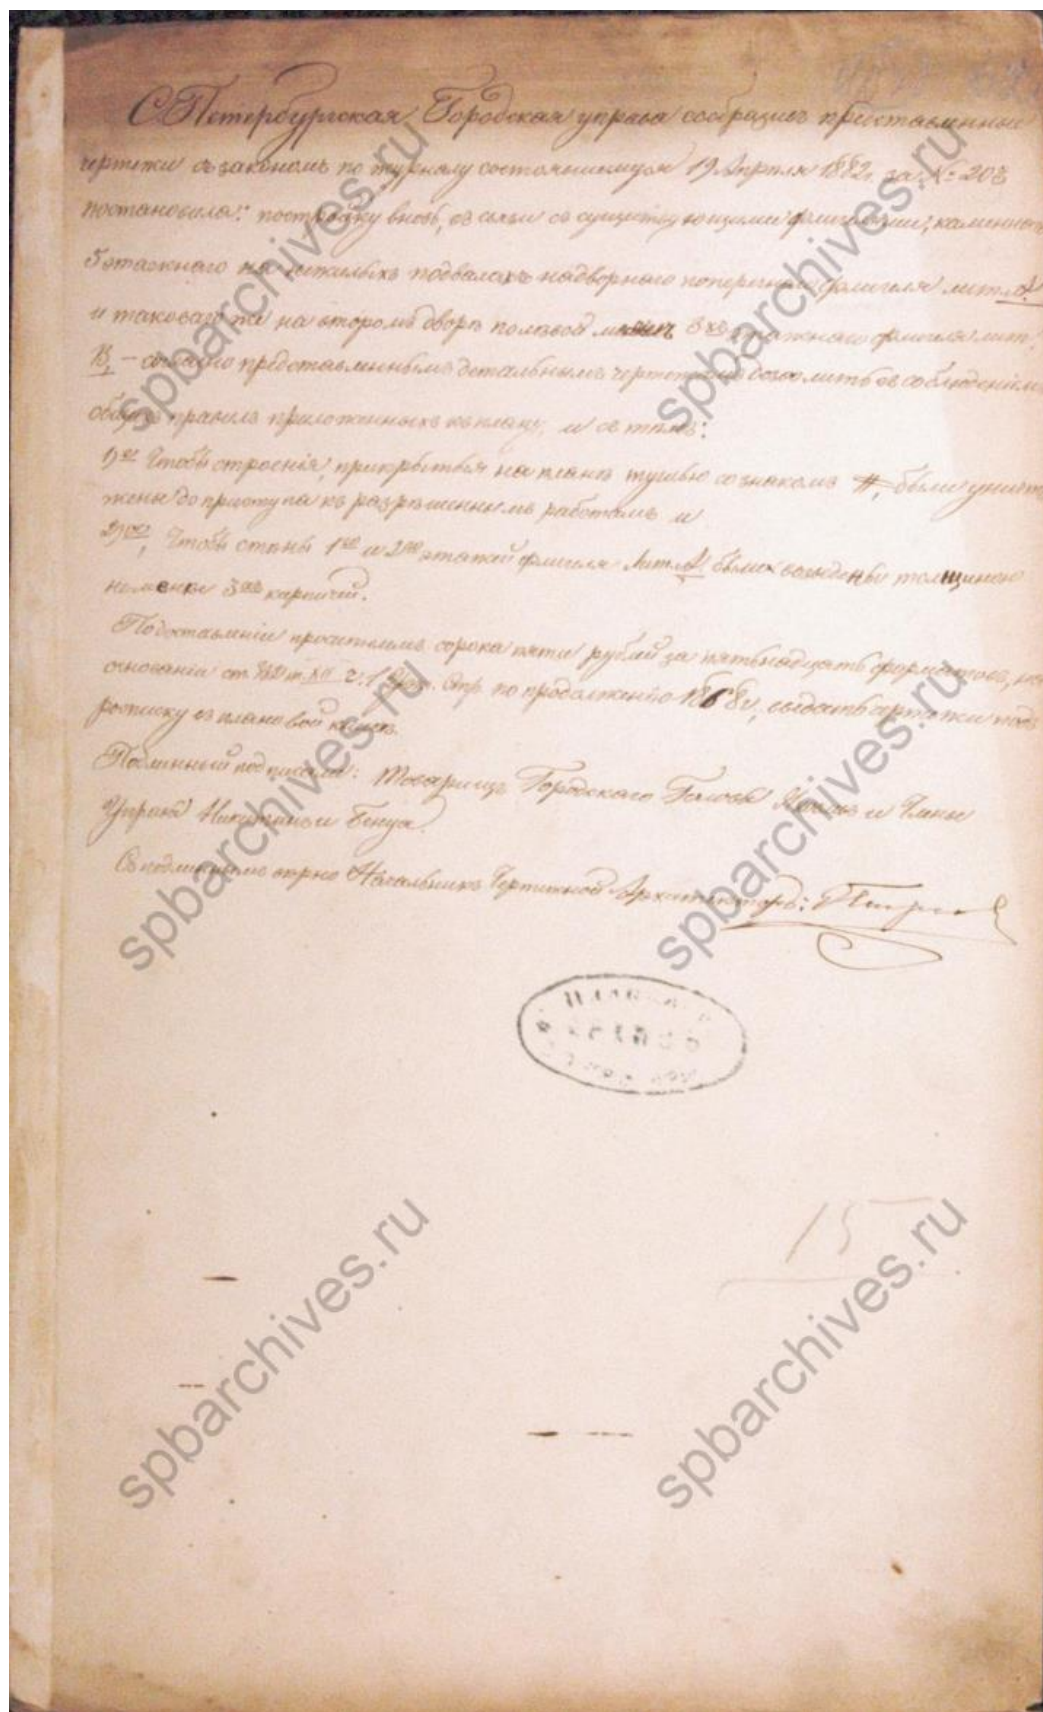 С.Петербургская Городская управа сообразивъ представленные
чертежи съ закономъ по журналу состоявшемуся 19 Апрѣля 1882 г. за № 203
постановила: постройку вновь, въ связи съ существующими флигелями, каменнаго
5 этажнаго на нежилыхъ подвалахъ надворнаго поперечнаго флигеля лит. А.
и таковаго же на второмъ дворѣ по лѣвой межѣ этажнаго флигеля лит.
В, — согласно представленнымъ детальнымъ чертежамъ дозволить съ соблюденіемъ
общихъ правилъ приложенныхъ къ плану, и съ тѣмъ:
1) Чтобы строенія, прикрытыя на планѣ тушью со знакомъ #, были уничто
жены до приступа къ разрѣшеннымъ работамъ и
2) Чтобы стѣны 1го и 2го этажей флигеля Лит. А. были возведены толщиною
не менѣе 3хъ кирпичей.
По доставленіи просителемъ сорока пяти рублей за пятьнадцать форматовъ, на
основаніи ст. т. XII ч. 1 Уст. Стр. по продолженію 1868 г., выдать чертежи подъ
росписку въ плановой книгѣ.
Подлинный подписали: Товарищъ Городского Головы и Члены
Управы Никитинъ и Бенуа.
Съ подлиннымъ вѣрно Начальникъ Чертежной Архитекторъ:
15
spbarchives.ru
spbarchives.ru
spbarchives.ru
spbarchives.ru
spbarchives.ru
spbarchives.ru